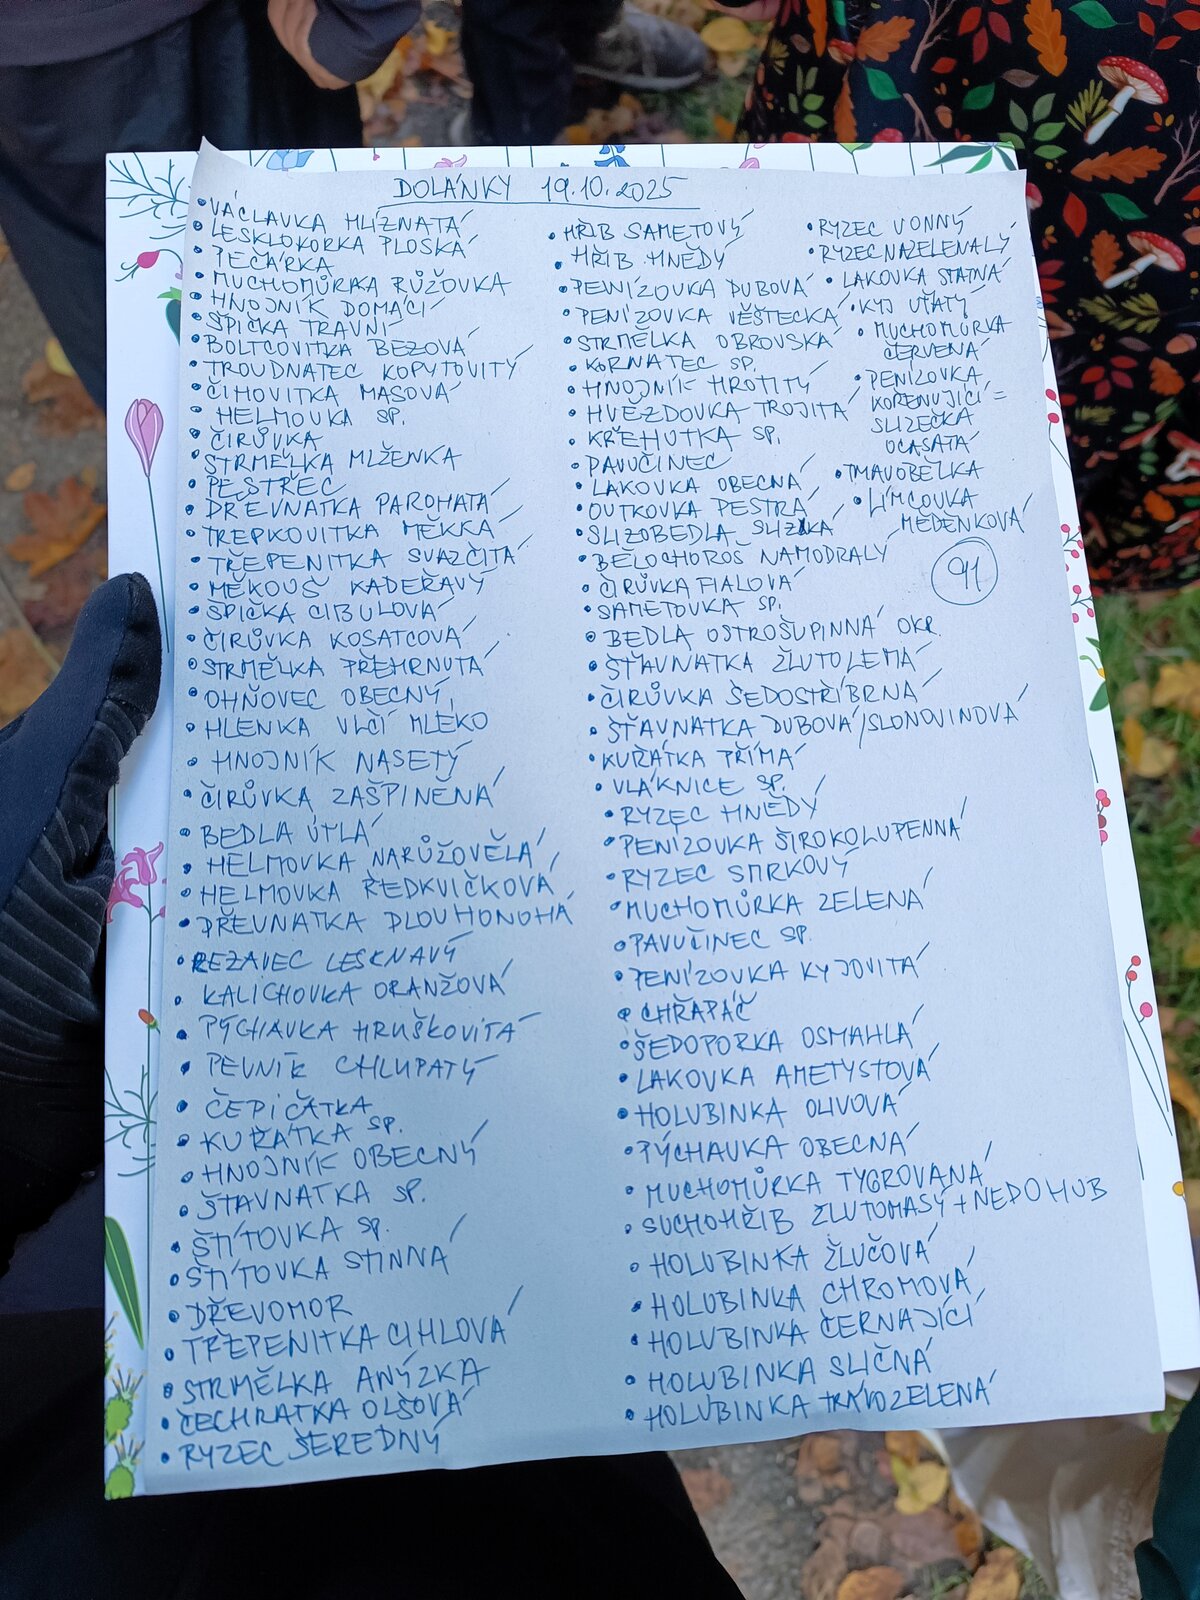 DOLÁNKY 19.10.2025
• VÁCLAVKA HLÍZNATÁ
• LESKLOKORKA PLOSKÁ
• PEČÁRKA
• MUCHOMŮRKA RŮŽOVKA
• HNOJNÍK DOMÁCÍ
• ŠPIČKA TRAVNÍ
• BOLTCOVITKA BEZOVÁ
• TROUDNATEC KOPYTOVITÝ
• ČIHOVITKA MASOVÁ
• HELMOVKA SP.
• ČIRŮVKA
• STRMĚLKA MLŽENKA
• PESTŘEC
• DŘEVNATKA PAROHATÁ
• TREPKOVITKA MĚKKÁ
• TŘEPENITKA SVAZČITÁ
• MĚKOUŠ KADEŘAVÝ
• ŠPIČKA CIBULOVÁ
• ČIRŮVKA KOSATCOVÁ
• STRMĚLKA PŘEHRNUTÁ
• OHŇOVEC OBECNÝ
• HLENKA VLČÍ MLÉKO
• HNOJNÍK NASETÝ
• ČIRŮVKA ZAŠPINĚNÁ
• BEDLA ÚTLÁ
• HELMOVKA NARŮŽOVĚLÁ
• HELMOVKA ŘEDKVIČKOVÁ
• DŘEVNATKA DLOUHONOHÁ
• REZAVEC LESKNAVÝ
• KALICHOVKA ORANŽOVÁ
• PÝCHAVKA HRUŠKOVITÁ
• PEVNÍK CHLUPATÝ
• ČEPIČATKA
• KUŘÁTKA SP.
• HNOJNÍK OBECNÝ
• ŠŤAVNATKA SP.
• ŠTÍTOVKA SP.
• ŠTÍTOVKA STINNÁ
• DŘEVOMOR
• TŘEPENITKA CIHLOVÁ
• STRMĚLKA ANÝZKA
• ČECHRATKA OLŠOVÁ
• RYZEC ŠEREDNÝ
• HŘIB SAMETOVÝ
• HŘIB HNĚDÝ
• PENÍZOVKA DUBOVÁ
• PENÍZOVKA VĚŠTECKÁ
• STRMĚLKA OBROVSKÁ
• KORNATEC SP.
• HNOJNÍK HROTITÝ
• HVĚZDOVKA TROJITÁ
• KŘEHUTKA SP.
• PAVUČINEC
• LAKOVKA OBECNÁ
• OUTKOVKA PESTRÁ
• SLIZOBEDLA SLIZKÁ
• BĚLOCHOROŠ NAMODRALÝ
• ČIRŮVKA FIALOVÁ
• SAMETOVKA SP.
• BEDLA OSTROŠUPINNÁ OKR.
• ŠŤAVNATKA ŽLUTOLEMÁ
• ČIRŮVKA ŠEDOSTŘÍBRNÁ
• ŠŤAVNATKA DUBOVÁ/SLONOVINOVÁ
• KUŘÁTKA PŘÍMÁ
• VLÁKNICE SP.
• RYZEC HNĚDÝ
• PENÍZOVKA ŠIROKOLUPENNÁ
• RYZEC SMRKOVÝ
• MUCHOMŮRKA ZELENÁ
• PAVUČINEC SP.
• PENÍZOVKA KYJOVITÁ
• CHŘAPÁČ
• ŠEDOPORKA OSMAHLÁ
• LAKOVKA AMETYSTOVÁ
• HOLUBINKA OLIVOVÁ
• PÝCHAVKA OBECNÁ
• MUCHOMŮRKA TYGROVANÁ
• SUCHOHŘIB ŽLUTOMASÝ + NEDOHUB
• HOLUBINKA ŽLUČOVÁ
• HOLUBINKA CHROMOVÁ
• HOLUBINKA ČERNAJÍCÍ
• HOLUBINKA SLIČNÁ
• HOLUBINKA TRÁVOZELENÁ
• RYZEC VONNÝ
• RYZEC NAZELENALÝ
• LAKOVKA STATNÁ
• KYJ UŤATÝ
• MUCHOMŮRKA
ČERVENÁ
• PENÍZOVKA
KOŘENUJÍCÍ =
SLIZEČKA
OCASATÁ
• TMAVOBĚLKA
• LÍMCOVKA
MĚDĚNKOVÁ
91